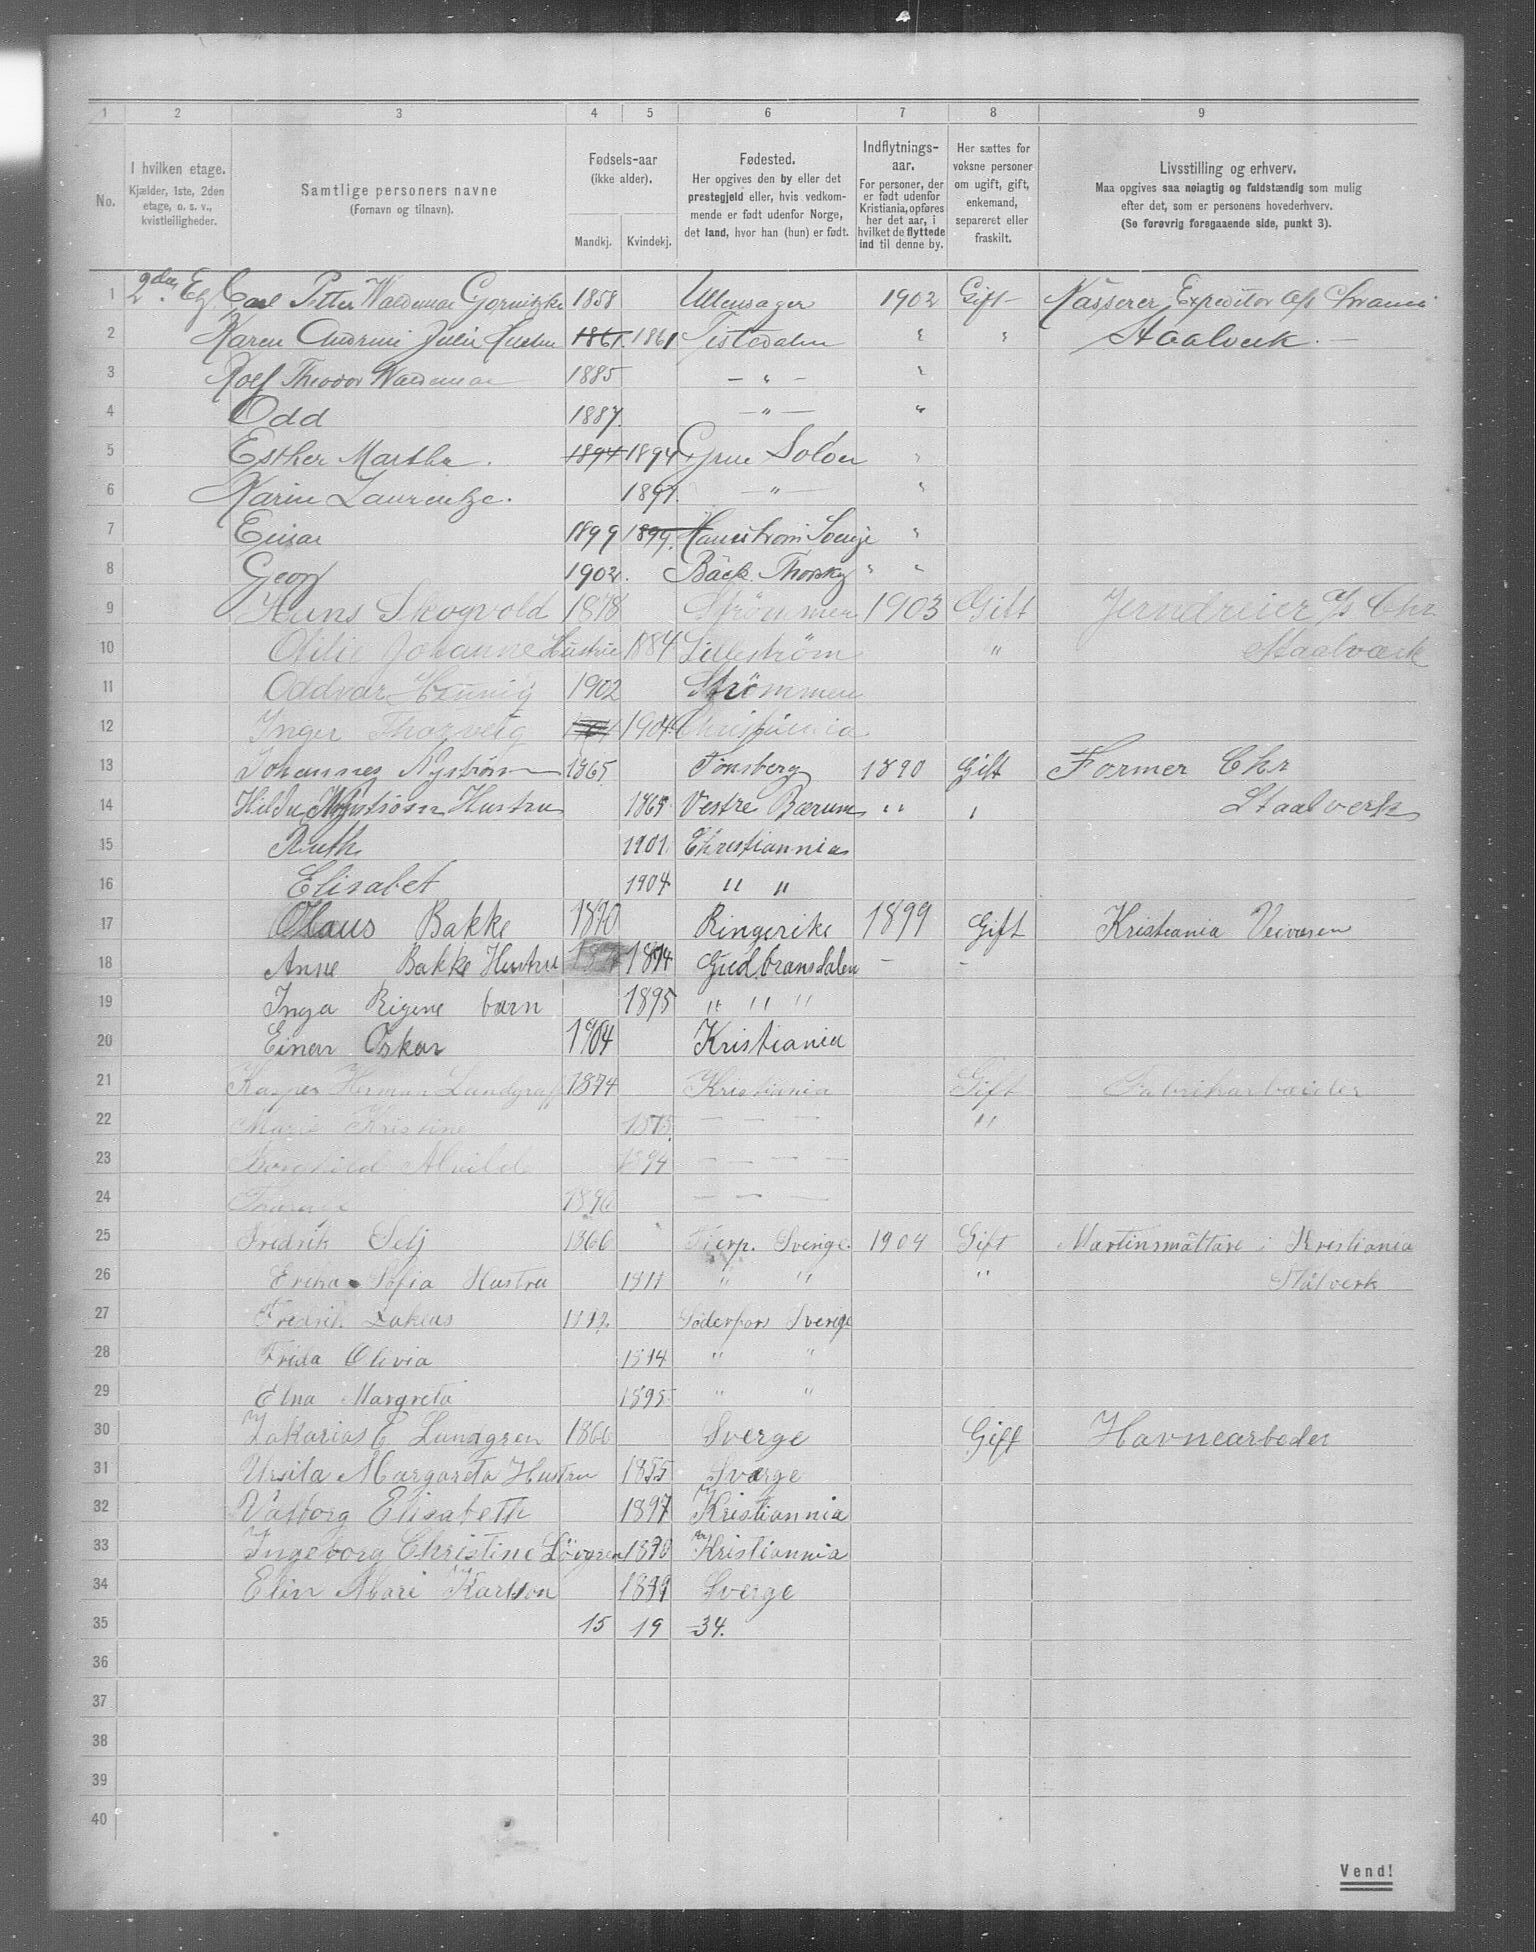 1 2 3 4 5 6 7 8 9
No.
I hvilken etage.
Kjælder, 1ste, 2den
etage, o. s. v.,
kvistleiligheder.
Samtlige personers navne
(Fornavn og tilnavn).
Fødsels-aar
(ikke alder).
Mandkj. Kvindekj.
Fødested.
Her opgives den by eller det
prestegjeld eller, hvis vedkom-
mende er født udenfor Norge,
det land, hvor han (hun) er født.
Indflytnings-
aar.
For personer, der
er født udenfor
Kristiania, opføres
her det aar, i
hvilket de flyttede
ind til denne by.
Her sættes for
voksne personer
om ugift, gift,
enkemand,
separeret eller
fraskilt.
Livsstilling og erhverv.
Maa opgives saa nøiagtig og fuldstændig som mulig
efter det, som er personens hovederhverv.
(Se forøvrig foregaaende side, punkt 3).
1 2den Etg Carl Petter Waldemar Gornitzka 1858 Ullensager 1902 Gift Kasserer, Expeditør
2 Karen Andrine Julie 1861 1861 Tistedalen " " Staalverk.
3 Rolf Theodor Waldemar 1885 — " — "
4 Odd 1887. — " — "
5 Esther Martha. 1894 1894 Grue Solør "
6 Karin Laurentze. 1897. — " — "
7 Einar 1899 1899. Sverige "
8 Georg 1902. Bäck. " "
9 Hans Skogvold 1878 Strømmen 1903 Gift Jerndreier A/S Chr.
10 Otilie Johanne Hustrue 1884 Lillestrøm " Staalværk
11 Oddvar 1902 Strømmen
12 Inger Thorveig 1904 1904. Christiania
13 Johannes Nystrøm 1865 Tønsberg 1890 Gift Former Chr
14 Hilda Nystrøm Hustru 1865 Vestre Bærum " " Staalverk
15 Ruth 1901 Christiannia
16 Elisabet 1904 " "
17 Olaus Bakke 1870 Ringerike 1899 Gift Kristiania Veivæsen
18 Anne Bakke Hustru 1874 Gudbransdalen — —
19 Inga Rigene barn 1895 " " "
20 Einar Oskar 1904 Kristiania
21 Kasper Herman Lundgraff 1874 Kristiania Gift Fabrikarbeider
22 Marie Kristine 1875 — — — "
23 Borghild Alvilde 1894 — — — —
24 1896 — — —
25 Fredrik Selj 1860 Sverige. 1904 Gift Martinsmältare i Kristiania
26 Sofia Hustru " " " Stålverk
27 Fredrik Söderfors Sverige
28 Frida Olivia 1894 " "
29 Elna Margreta 1895 " "
30 Zakarias E Lundgren 1860 Sverge Gift Havnearbeder
31 Ursila Margareta Hustru 1855 Sverge
32 Valborg Elisabeth 1897 Kristiannia
33 Ingeborg Christine Lövgren 1890 Kristiannia
34 Elin Mari Karlson 1899 Sverge
35 15 19 34.
36
37
38
39
40
Vend!